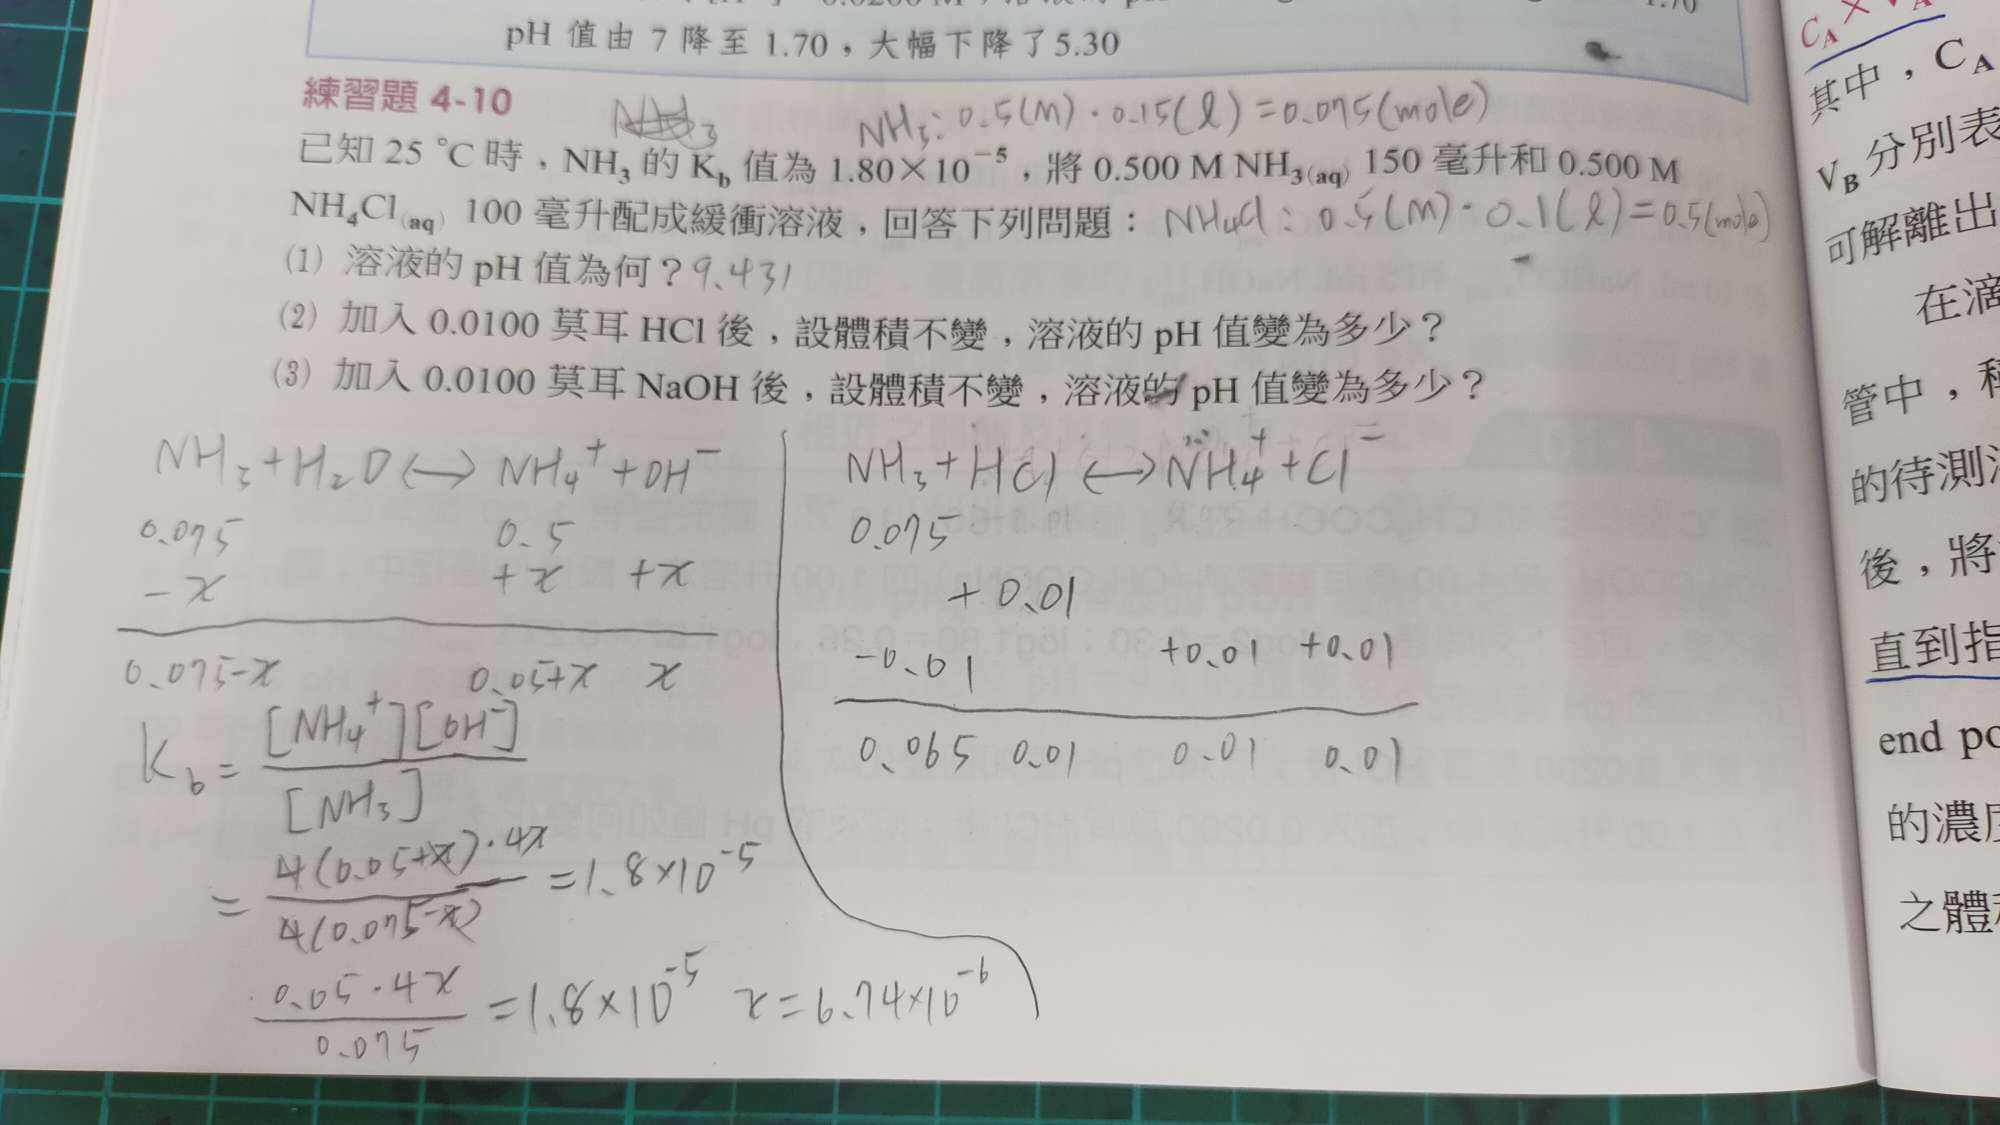 pH 值由 7 降至 1.70，大幅下降了5.30
練習題 4-10
NH₃: 0.5(M)·0.15(l)=0.075(mole)
已知 25 °C 時，NH₃ 的 K_b 值為 1.80×10⁻⁵，將 0.500 M NH₃(aq) 150 毫升和 0.500 M
NH₄Cl(aq) 100 毫升配成緩衝溶液，回答下列問題：NH₄Cl: 0.5(M)·0.1(l)=0.5(mole)
(1) 溶液的 pH 值為何？9.431
(2) 加入 0.0100 莫耳 HCl 後，設體積不變，溶液的 pH 值變為多少？
(3) 加入 0.0100 莫耳 NaOH 後，設體積不變，溶液的 pH 值變為多少？
NH₃+H₂O↔NH₄⁺+OH⁻
0.075 0.5
-x +x +x
0.075-x 0.05+x x
K_b=[NH₄⁺][OH⁻]/[NH₃]
=4(0.05+x)·4x/4(0.075-x)=1.8×10⁻⁵
0.05·4x/0.075=1.8×10⁻⁵ x=6.74×10⁻⁶
NH₃+HCl↔NH₄⁺+Cl⁻
0.075
+0.01
-0.01 +0.01 +0.01
0.065 0.01 0.01 0.01
C_A×V_A
其中，C_A
V_B分別表
可解離出
在滴
管中，
的待測
後，將
直到指
end po
的濃度
之體積